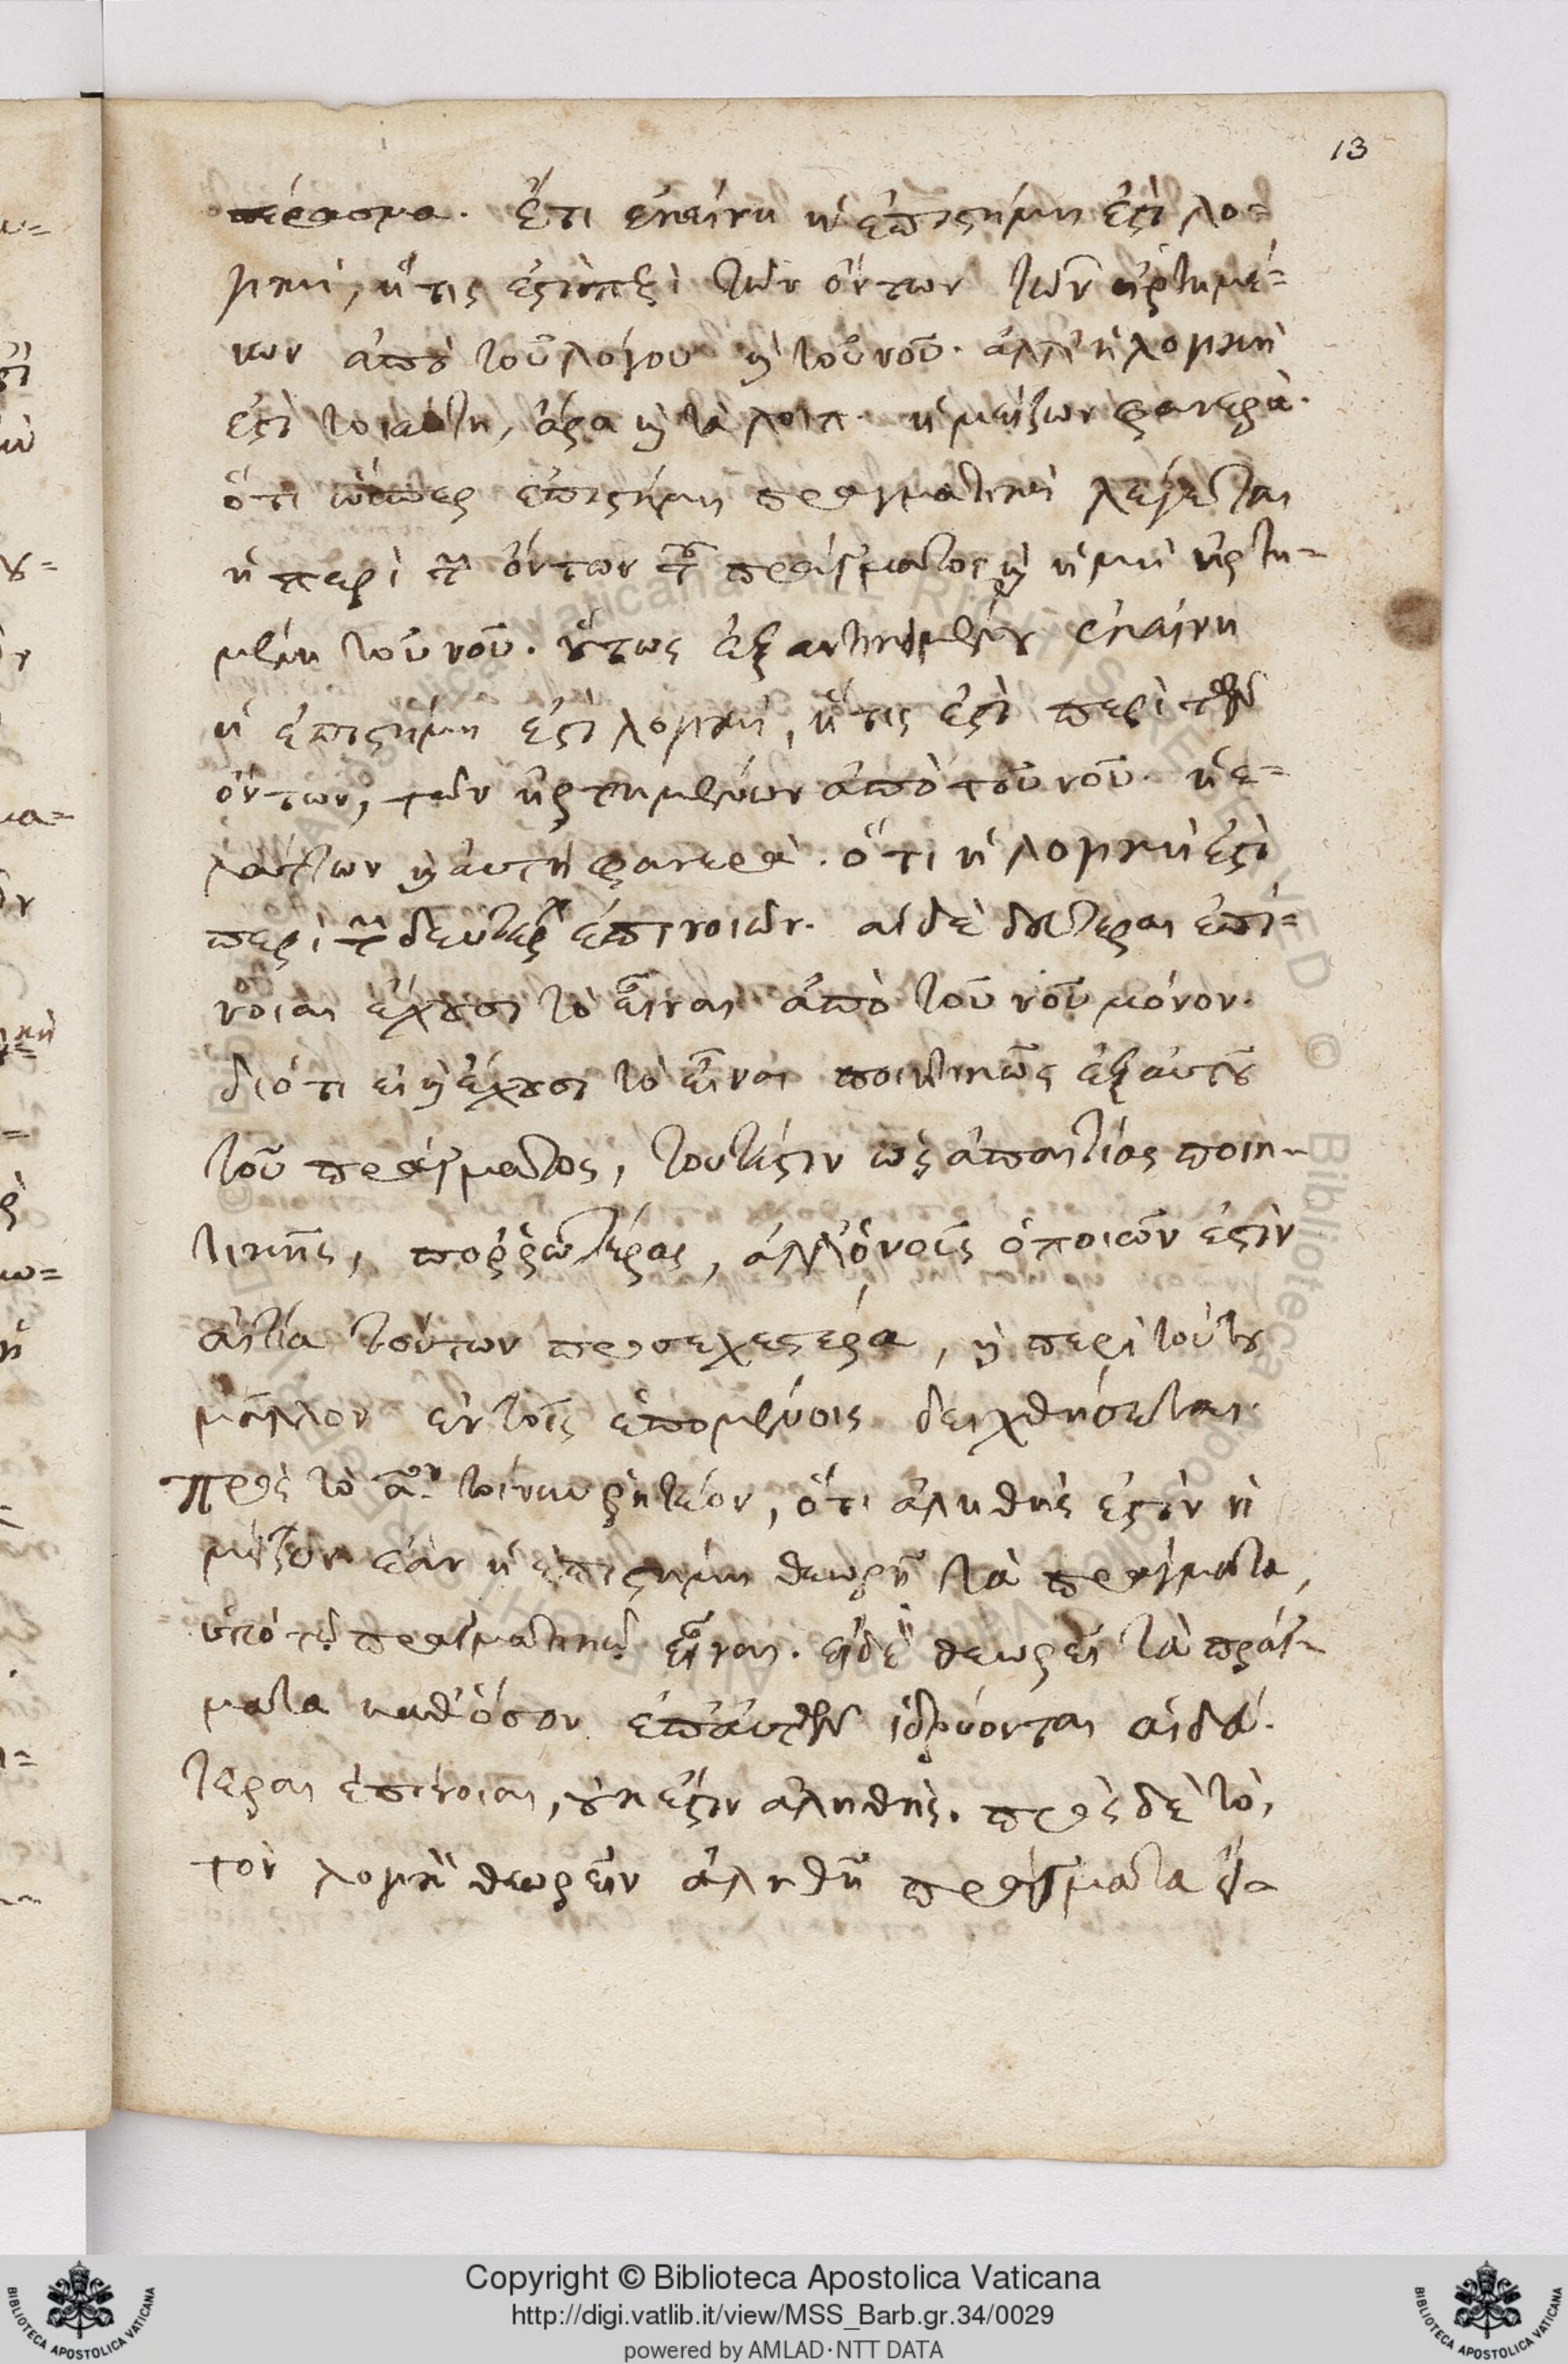 13
πέρασμα. ἔτι ἐκείνη ἡ ἐπιστήμη ἐστὶ λο=
γικὴ, ἥτις ἐστὶ περὶ τῶν ὄντων τῶν ἠρτημέ=
νων ἀπὸ τοῦ λόγου ἢ τοῦ νοῦ. ἀλλ' ἡ λογικὴ
ἐστὶ τοιαύτη, ἄρα καὶ τὰ λοιπ. ἡ μείζων φανερὰ.
ὅτι ὥσπερ ἐπιστήμη πραγματικὴ λέγεται
ἡ περὶ τῶν ὄντων τοῦ πράγματος καὶ ἡ μὴ ἠρτη=
μένη τοῦ νοῦ. οὕτως ἐξ ἀντικειμένου ἐκείνη
ἡ ἐπιστήμη ἐστὶ λογικὴ, ἥτις ἐστὶ περὶ τῶν
ὄντων, τῶν ἠρτημένων ἀπὸ τοῦ νοῦ. ἡ ἐ=
λάττων καὶ αὐτὴ φανερὰ. ὅτι ἡ λογικὴ ἐστὶ
περὶ τῶν δευτέρων ἐπινοιῶν. αἱ δὲ δεύτεραι ἐπί=
νοιαι ἔχουσι τὸ εἶναι ἀπὸ τοῦ νοῦ μόνον.
διότι εἰ καὶ ἔχουσι τὸ εἶναι ποιητικῶς ἐξ αὐτοῦ
τοῦ πράγματος, τουτέστιν ὡς ἀπ' αἰτίας ποιη=
τικῆς, πορρωτέρας, ἀλλ' ὁ νοῦς ὁ ποιῶν ἐστὶν
αἰτία τούτων προσεχεστέρα, καὶ περὶ τούτου
μᾶλλον ἐν τοῖς ἑπομένοις δειχθήσεται.
Πρὸς τὸ αον. τοίνυν ῥητέον, ὅτι ἀληθής ἐστὶν ἡ
μείζων ἐὰν ἡ ἐπιστήμη θεωρῇ τὰ πράγματα,
ὑπὸ τῷ πραγματικῷ εἶναι. εἰ δὲ θεωρεῖ τὰ πράγ=
ματα καθόσον ἐπ' αὐτῶν ἱδρύονται αἱ δεύ.
τεραι ἐπίνοιαι, οὐκ ἔστιν ἀληθής. πρὸς δὲ τὸ,
τὸν λογικὸν θεωρεῖν ἀληθῆ πράγματα
Copyright © Biblioteca Apostolica Vaticana
http://digi.vatlib.it/view/MSS_Barb.gr.34/0029
powered by AMLAD·NTT DATA
BIBLIOTECA APOSTOLICA VATICANA
BIBLIOTECA APOSTOLICA VATICANA